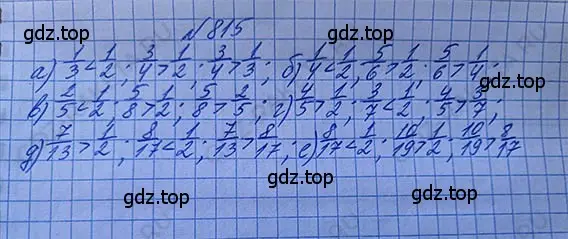 gdz.top
№815
а) 1/3 < 1/2; 3/4 > 1/2; 3/4 > 1/3; б) 1/4 < 1/2; 5/6 > 1/2; 5/6 > 1/4;
gdz.top gdz.top
в) 2/5 < 1/2; 5/8 > 1/2; 5/8 > 2/5; г) 4/5 > 1/2; 3/7 < 1/2; 4/5 > 3/7;
gdz.top
д) 7/13 > 1/2; 8/17 < 1/2; 7/13 > 8/17; е) 8/17 < 1/2; 10/19 > 1/2; 10/19 > 8/17
gdz.top gdz.top
gdz.top